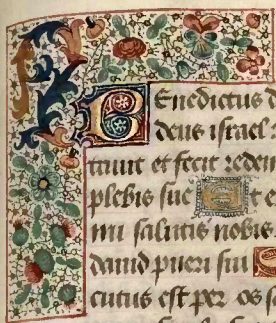 Benedictus d
deus israel
tauit et fecit redem
plebis sue Et e
nu salutis nobis
dauid pueri sui
cutus est per os s